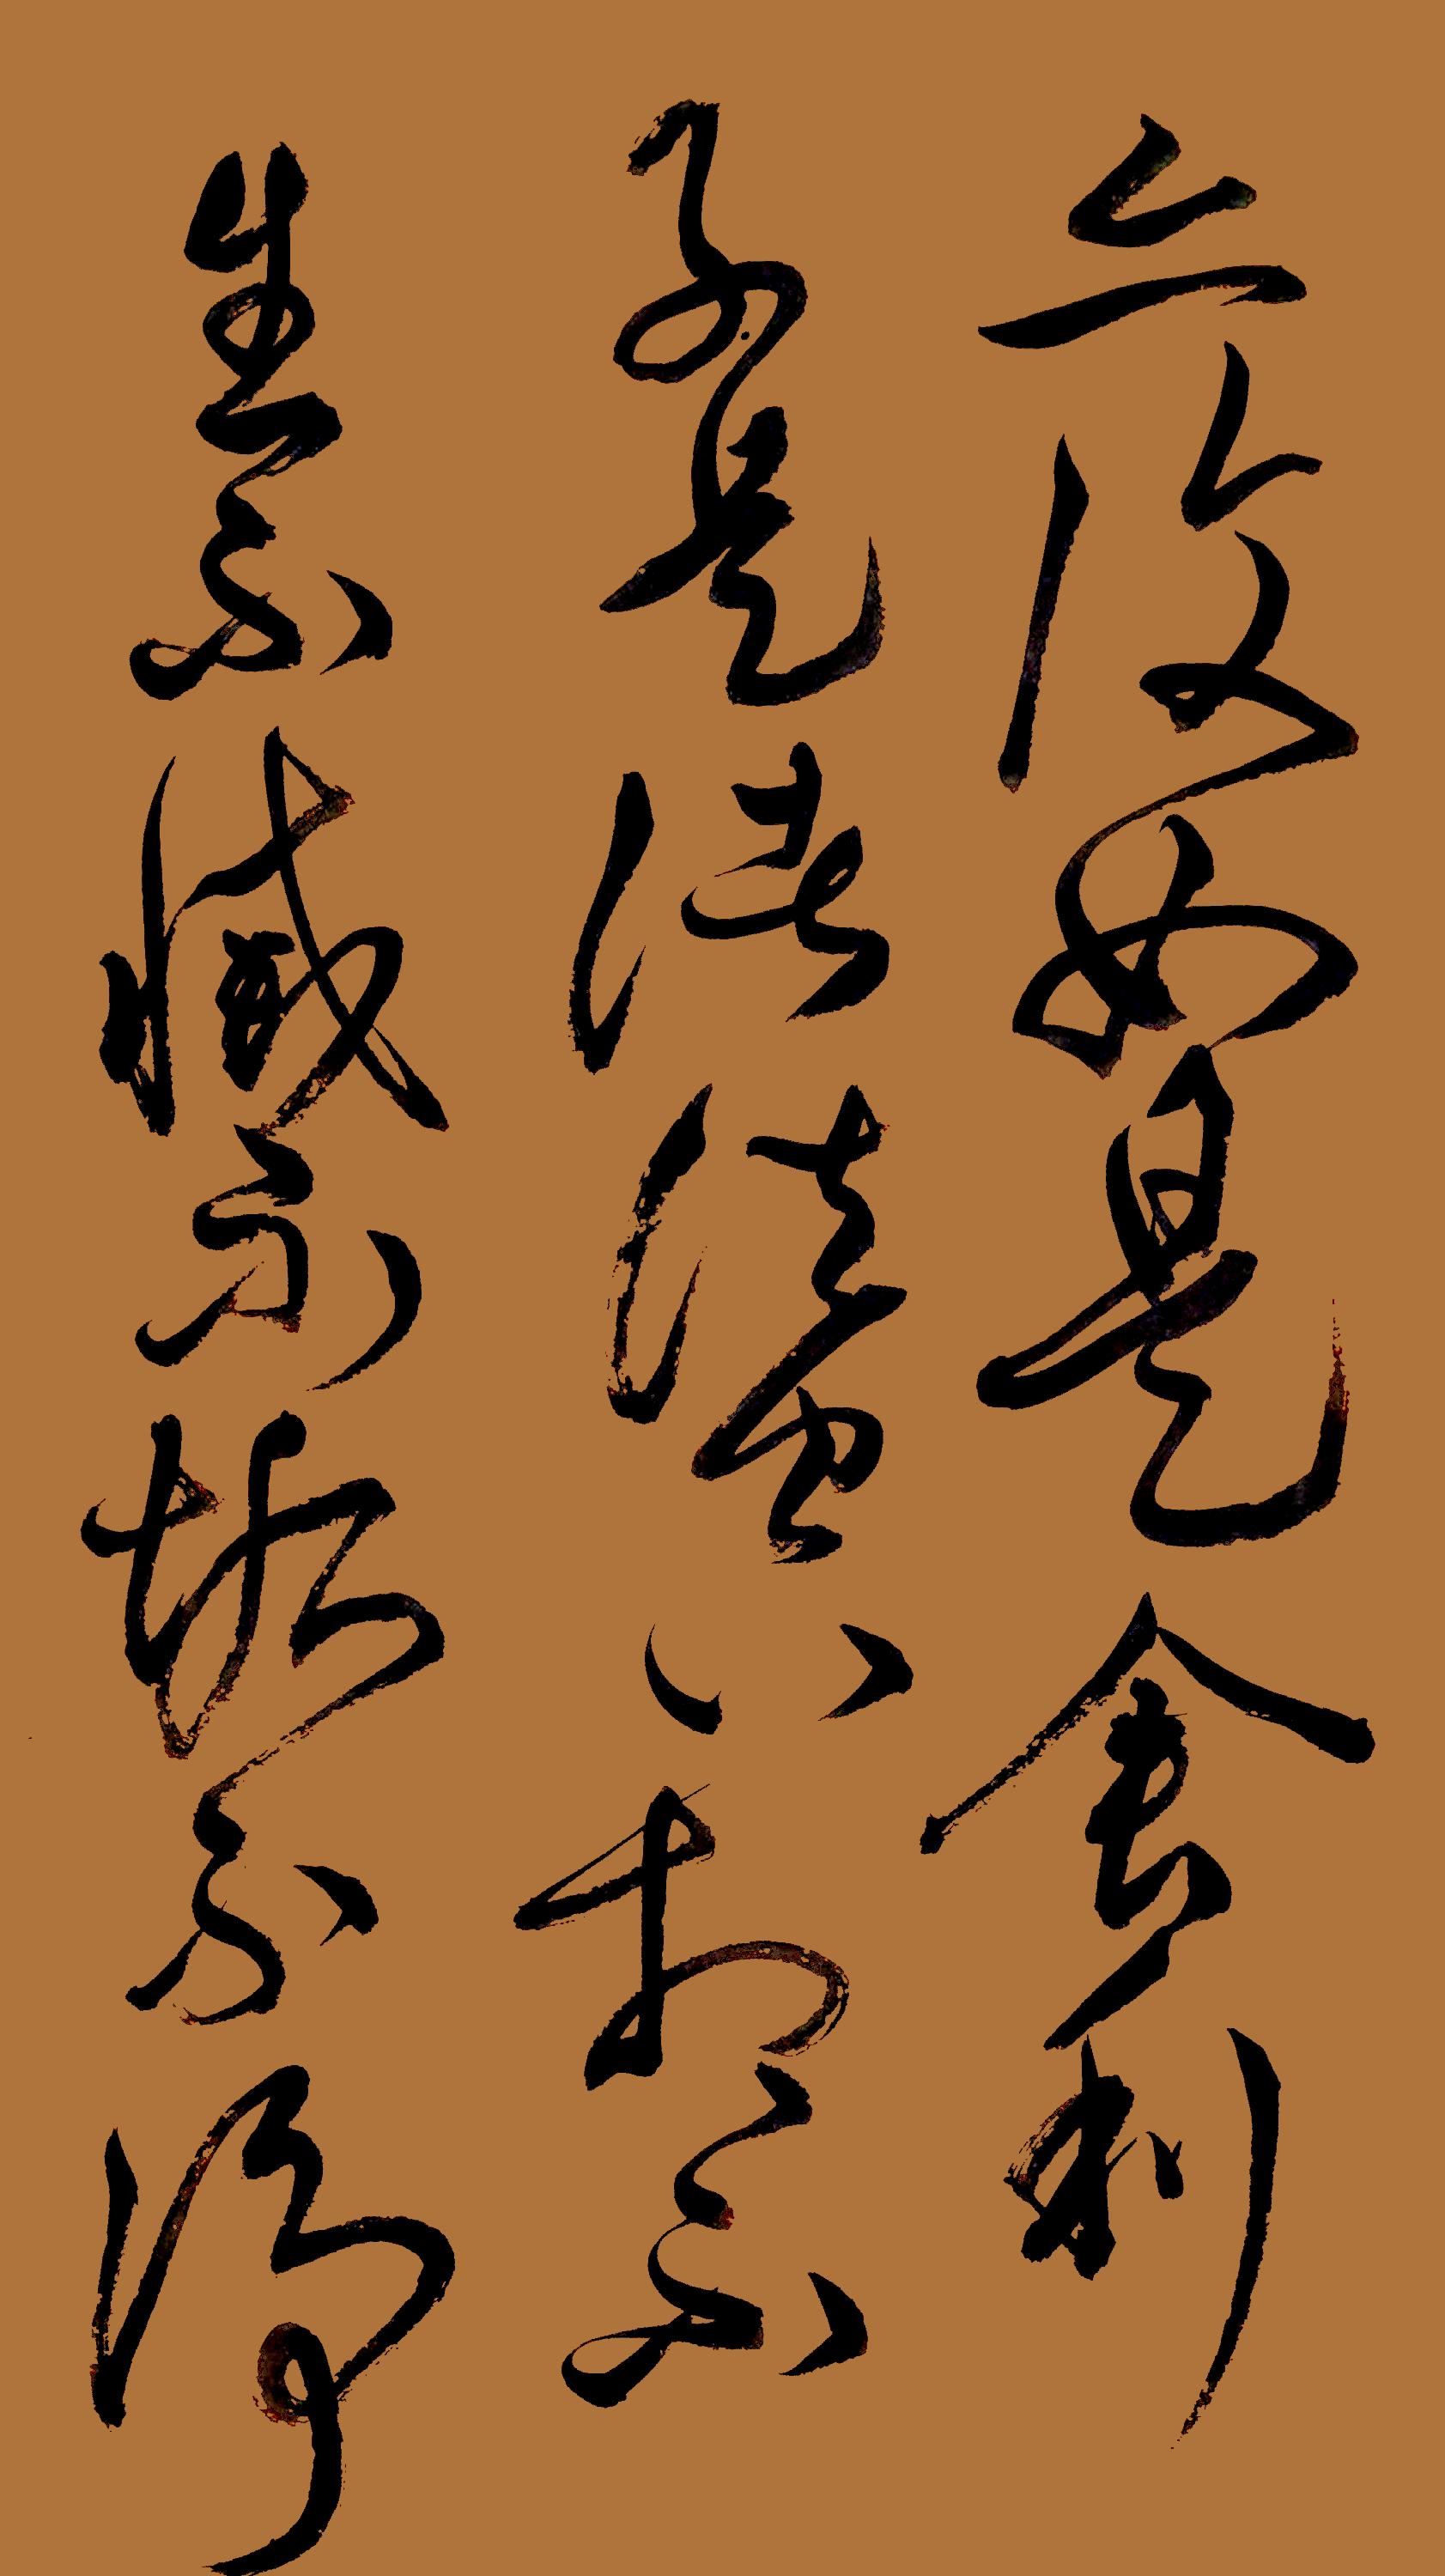 亦復如是舍利
子是諸法空相不
生不滅不垢不淨